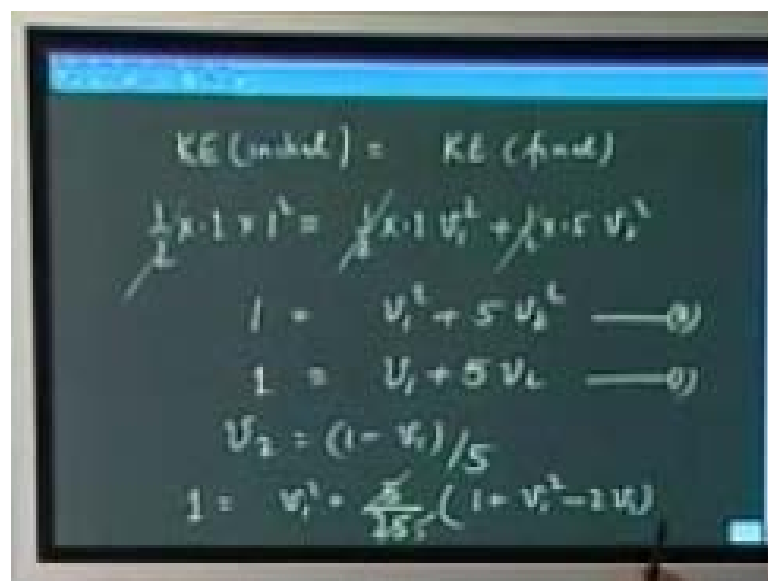 KE (initial) = KE (final)
1/2 x.1 x 1² = 1/2 x.1 V₁² + 1/2 x.5 V₂²
1 = V₁² + 5 V₂² ——
1 = V₁ + 5 V₂ ——
V₂ = (1 - V₁)/5
1 = V₁² + 5/25 (1 + V₁² - 2 V₁)